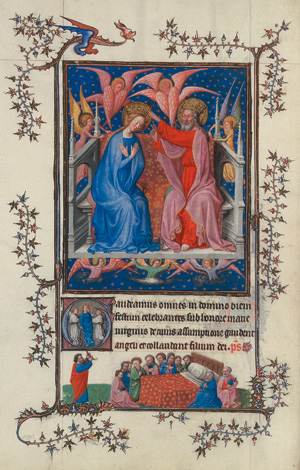 Gaudeamus omnes in domino diem
festum celebrantes sub honore marie
virginis de cuius assumptione gaudent
angeli et collaudant filium dei. ps